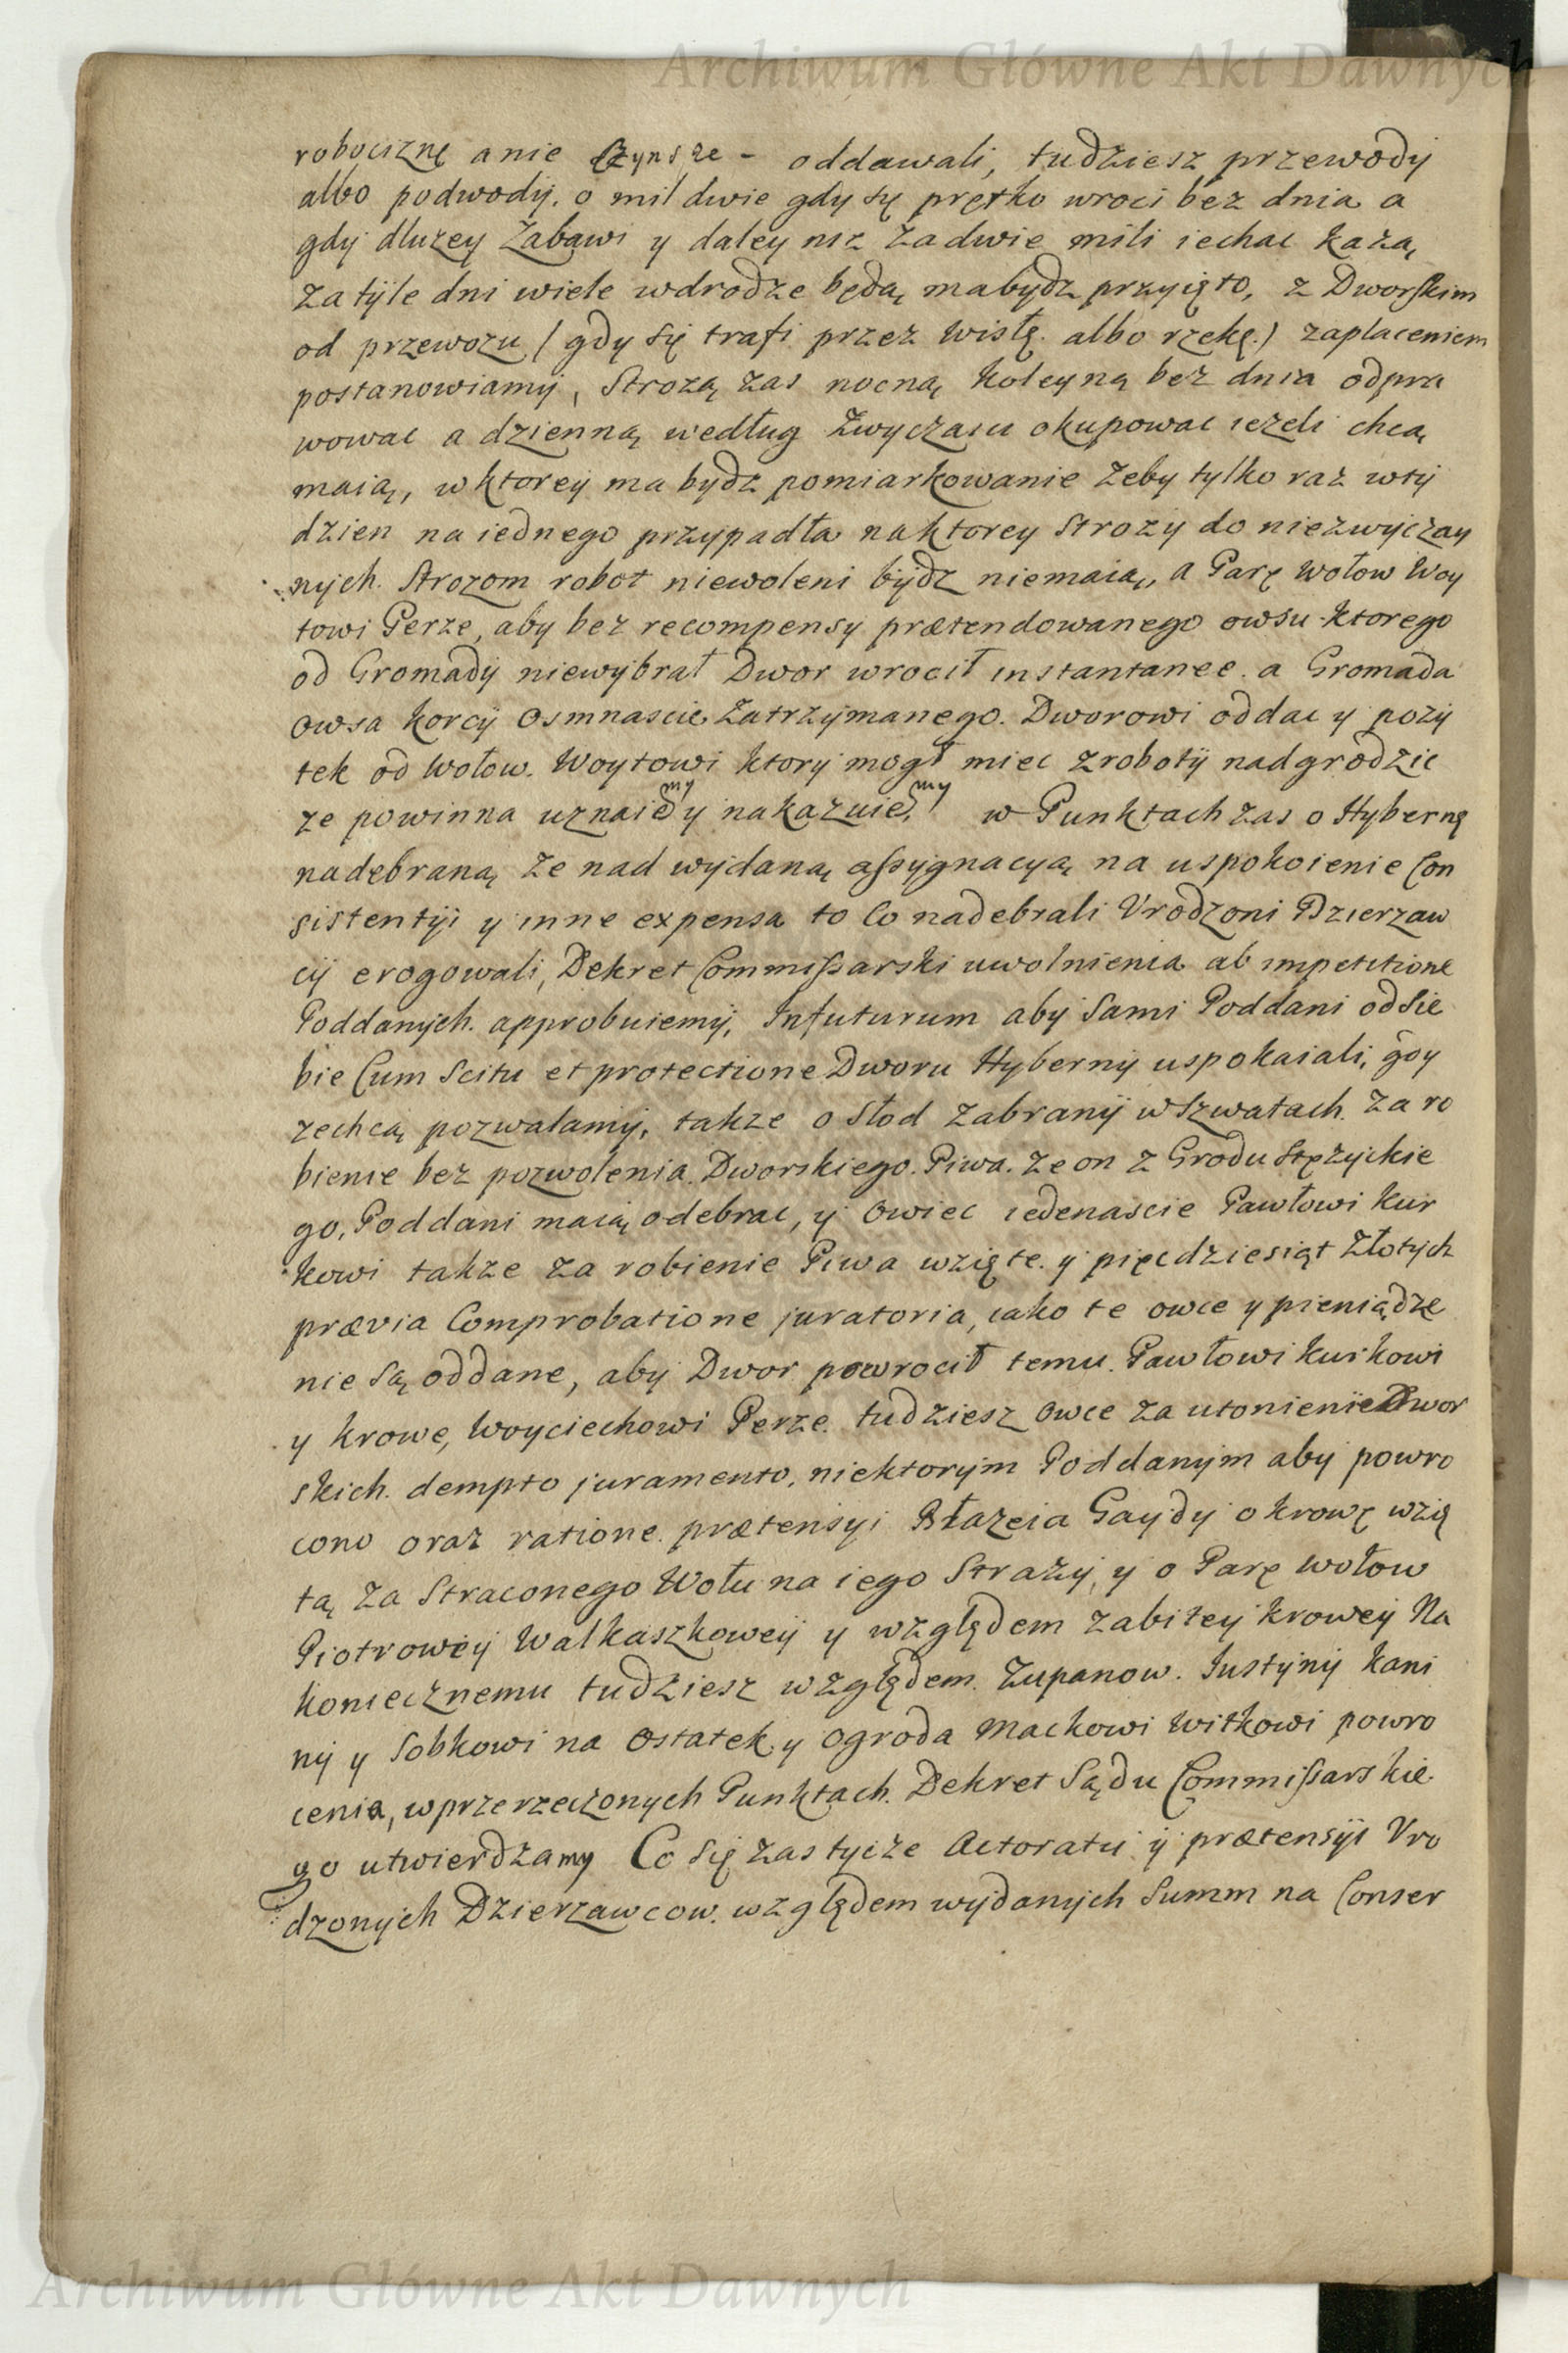 Archiwum Główne Akt Dawnych
robociznę a nie Czynsze - oddawali, tudziesz przewody
albo podwody, o mil dwie gdy się prętko wroci bez dnia a
gdy dluzey Zabawi y daley niz Za dwie mili iechac każą,
Za tyle dni wiele wdrodze będą, mabydz przyięto, z Dworskim
od przewozu / gdy się trafi przez Wisłę albo rzekę./ zaplaceniem
postanowiamy, Strozą zas nocną koleyną bez dnia odpra
wowac a dzienną według Zwyczaiu okupowac iezeli chcą
maią, w ktorey ma bydz pomiarkowanie Zeby tylko raz wty
dzien na iednego przypadła na ktorey Strozy do niezwyczay
nych. Strozom robot niewoleni bydz niemaią, a Parę Wołow Woy
towi Perze, aby bez recompensy prætendowanego owsu ktorego
od Gromady niewybrał Dwor wrocił instantanee. a Gromada
owsa korcy Osmnascie Zatrzymanego. Dworowi oddac y pozy
tek od Wołow. Woytowi ktory mogł miec z roboty nadgrodzic
ze powinna uznaiemy y nakazuiemy, w Punktach zas o Hybernę
nadebraną Ze nad wydaną assygnacyą na uspokoienie Con
sistentyi y inne expensa to Co nadebrali Vrodzoni Dzierzaw
cy erogowali, Dekret Commissarski uwolnienia ab impetitione
Poddanych. approbuiemy, Infuturum aby Sami Poddani od Sie
bie Cum Scitu et protectione Dworu Hyberny uspokaiali, gdy
zechcą pozwalamy, takze o Słod Zabrany w Szwatach. Za ro
bienie bez pozwolenia Dworskiego. Piwa. Ze on z Grodu Stężyckie
go, Poddani maią odebrac, y Owiec iedenascie Pawłowi Kur
kowi takze Za robienie Piwa wzięte. y pięcdziesiąt Złotych
prævia Comprobatione juratoria, iako te owce y pieniądze
nie Są oddane, aby Dwor powrocił temu Pawłowi Kurkowi
y krowe, Woyciechowi Perze. tudziesz Owce Za utonienie Dwor
skich. dempto juramento, niektorym Poddanym aby powro
cono oraz ratione prætensyi Błazeia Gaydy o krowę wzię
tą Za Straconego Wołu na iego Strazy, y o Parę wołow
Piotrowey Walkaszkowey y względem Zabitey krowey Na
koniecznemu tudziesz względem Zupanow. Iustyny Kani
ny y Sobkowi na Ostatek y Ogroda Mackowi Witkowi powro
cenia, w przerzeczonych Punktach. Dekret Sądu Commissarskie
go utwierdzamy Co Się zas tycze Actoratu y prætensyi Vro
dzonych Dzierzawcow. względem wydanych Summ na Conser
Archiwum Główne Akt Dawnych